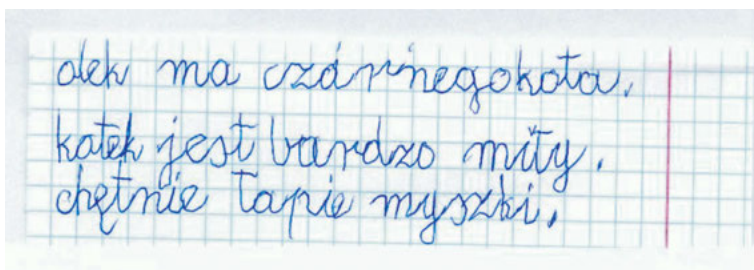 olek ma czárńegokota.
kotek jest bardzo miły.
chętnie łapie myszki.